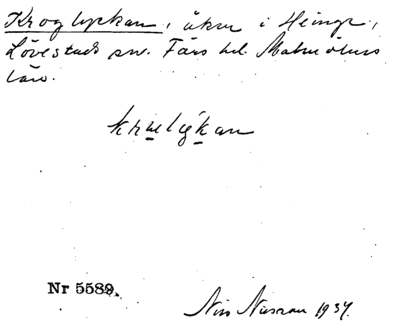 Kroglyckan, åker i Heinge,
Lövestads sn. Färs hd. Malmöhus
län.
kruelykan
Nr 5589.
Nils Nilsson 1934.